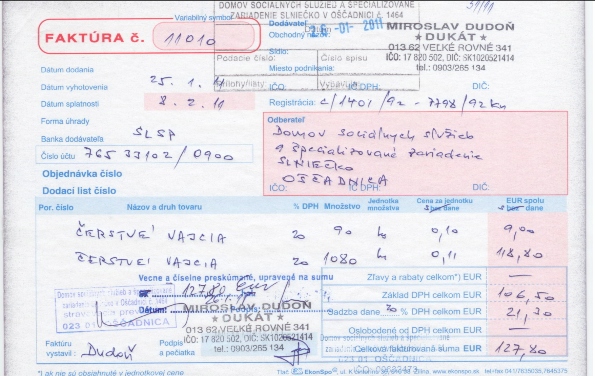 DOMOV SOCIÁLNYCH SLUŽIEB A ŠPECIALIZOVANÉ
ZARIADENIE SLNIEČKO V OŠČADNICI č. 1464
Variabilný symbol
FAKTÚRA č. 11010
Dodávateľ
Obchodný názov:
26 -01- 2011
MIROSLAV DUDOŇ
* DUKÁT *
013 62 VEĽKÉ ROVNÉ 341
IČO: 17 820 502, DIČ: SK1020521414
tel.: 0903/265 134
Sídlo:
Podacie číslo: Číslo spisu
Miesto podnikania:
Dátum dodania
Dátum vyhotovenia 25. 1. 11
Prílohy/listy Vybavuje
IČO: IČ DPH: DIČ:
Dátum splatnosti 8. 2. 11
Registrácia: C/1401/92 - 7798/92 Kn
Forma úhrady
Odberateľ
Banka dodávateľa SLSP
Domov sociálnych služieb
Číslo účtu 76533102/0900
a špecializované zariadenie
SLNIEČKO
Objednávka číslo
OŠČADNICA
Dodací list číslo
IČO: IČ DPH: DIČ:
Por. číslo Názov a druh tovaru % DPH Množstvo Jednotka množstva Cena za jednotku s bez dane EUR spolu s bez dane
ČERSTVÉ VAJCIA 20 90 ks 0,10 9,00
ČERSTVÉ VAJCIA 20 1080 ks 0,11 118,80
Vecne a číselne preskúmané, upravené na sumu
Zľavy a rabaty celkom*) EUR —
127,80 Eur
Domov sociálnych služieb a špecializované
023 01 OŠČADNICA
Základ DPH celkom EUR 106,50
Dátum: Podpis:
MIROSLAV DUDOŇ
* DUKÁT *
013 62 VEĽKÉ ROVNÉ 341
IČO: 17 820 502, DIČ: SK1020521414
tel.: 0903/265 134
Sadzba dane 20 % DPH celkom EUR 21,30
Oslobodené od DPH celkom EUR —
Faktúru vystavil: Dudoň
Podpis a pečiatka
Celková fakturovaná suma EUR 127,80
*) ak nie sú obsiahnuté v jednotkovej cene